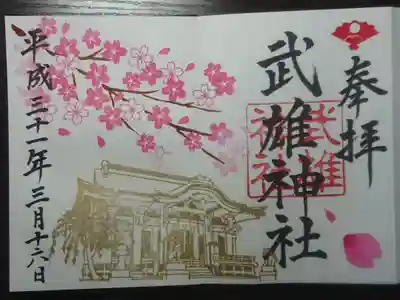 奉拝
武雄神社
武雄
神社
平成三十一年 三月十六日